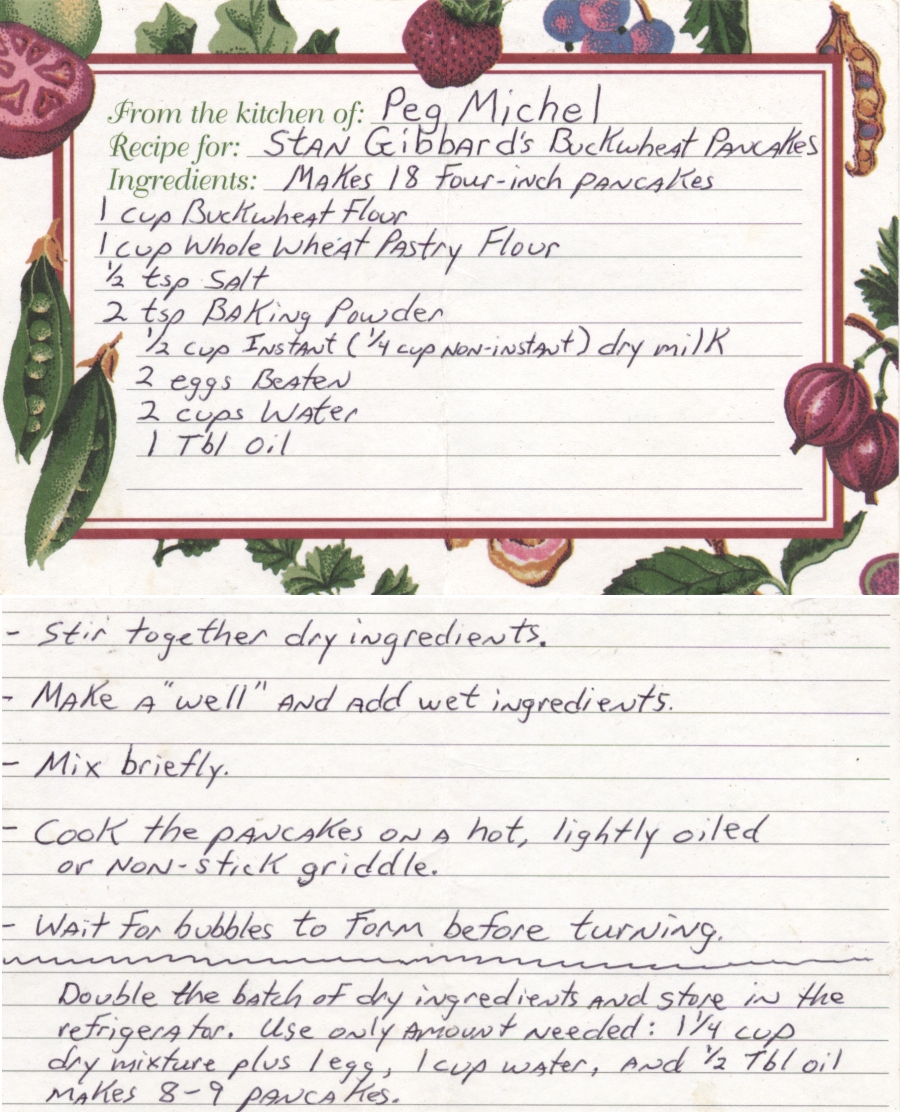 From the kitchen of: Peg Michel
Recipe for: Stan Gibbard's Buckwheat Pancakes
Ingredients: Makes 18 four-inch pancakes
1 cup Buckwheat Flour
1 cup Whole Wheat Pastry Flour
½ tsp Salt
2 tsp Baking Powder
½ cup Instant (¼ cup non-instant) dry milk
2 eggs Beaten
2 cups Water
1 Tbl Oil
- Stir together dry ingredients.
- Make a "well" and add wet ingredients.
- Mix briefly.
- Cook the pancakes on a hot, lightly oiled
or non-stick griddle.
- Wait for bubbles to form before turning.
Double the batch of dry ingredients and store in the
refrigerator. Use only amount needed: 1¼ cup
dry mixture plus 1 egg, 1 cup water, and ½ Tbl oil
makes 8-9 pancakes.